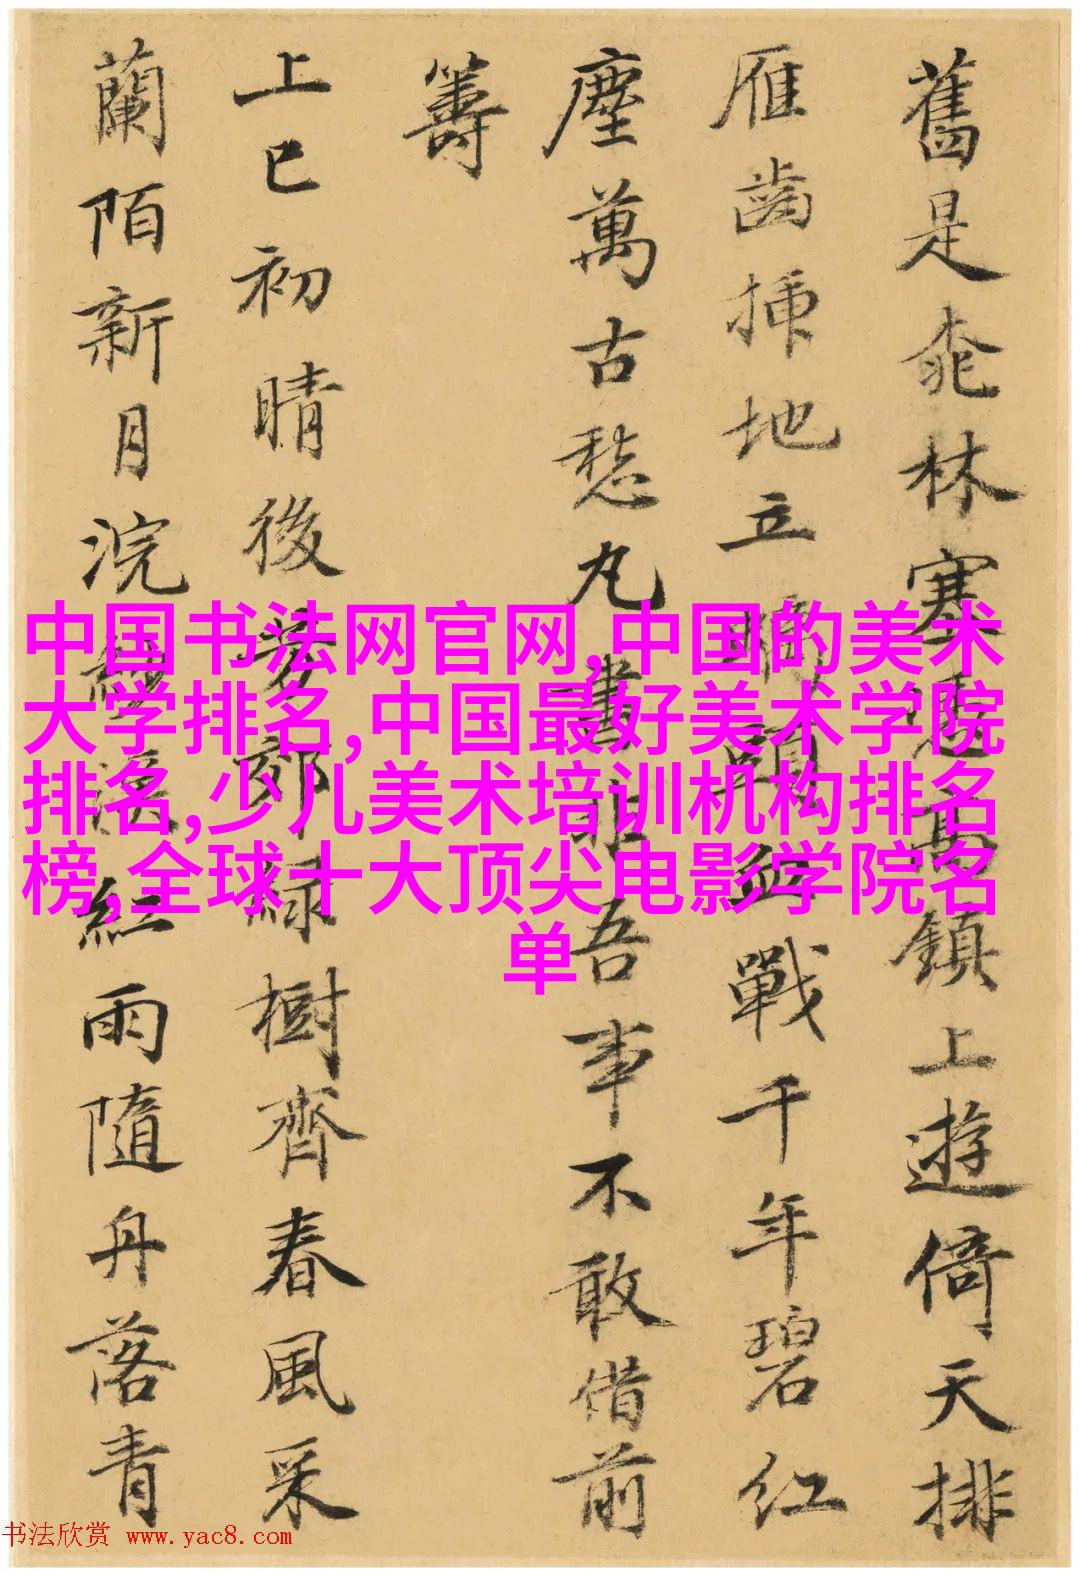 舊是𣒫林塞馬鎮上遊倚天排
雁齒揷地立頭血戰千年碧红
塵萬古愁丸書非吾事不敢借前
籌
上巳初晴後芳郊緑樹齊春風采
蘭陌新月浣溪红雨隨舟落青
中国书法网官网,中国的美术
大学排名,中国最好美术学院
排名,少儿美术培训机构排名
榜,全球十大顶尖电影学院名
单
书法欣赏 www.yac8.com